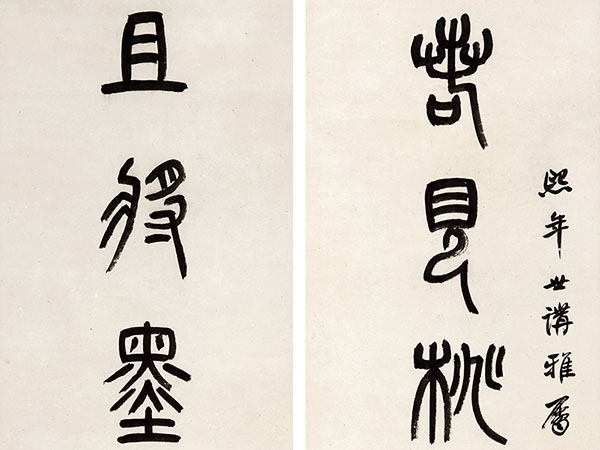 熙年世講雅屬
若見桃
且將墨